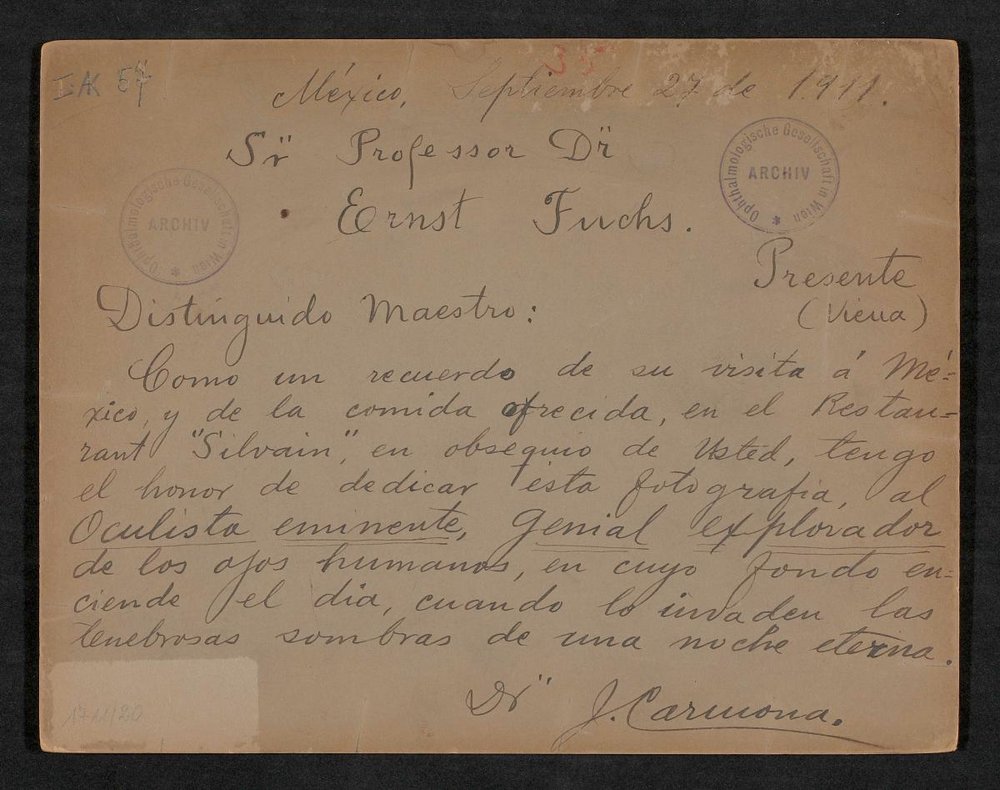 I.AK 57
35
México, Septiembre 27 de 1911.
Sr Professor Dr
Ernst Fuchs.
Ophthalmologische Gesellschaft in Wien
ARCHIV
Ophthalmologische Gesellschaft in Wien
ARCHIV
Presente
(Viena)
Distinguido Maestro:
Como un recuerdo de su visita á Mé=
xico, y de la comida ofrecida, en el Restau=
rant "Silvain", en obsequio de Usted, tengo
el honor de dedicar esta fotografía, al
Oculista eminente, genial explorador
de los ojos humanos, en cuyo fondo en=
ciende el dia, cuando lo invaden las
tenebrosas sombras de una noche eterna.
Dr J. Carmona.